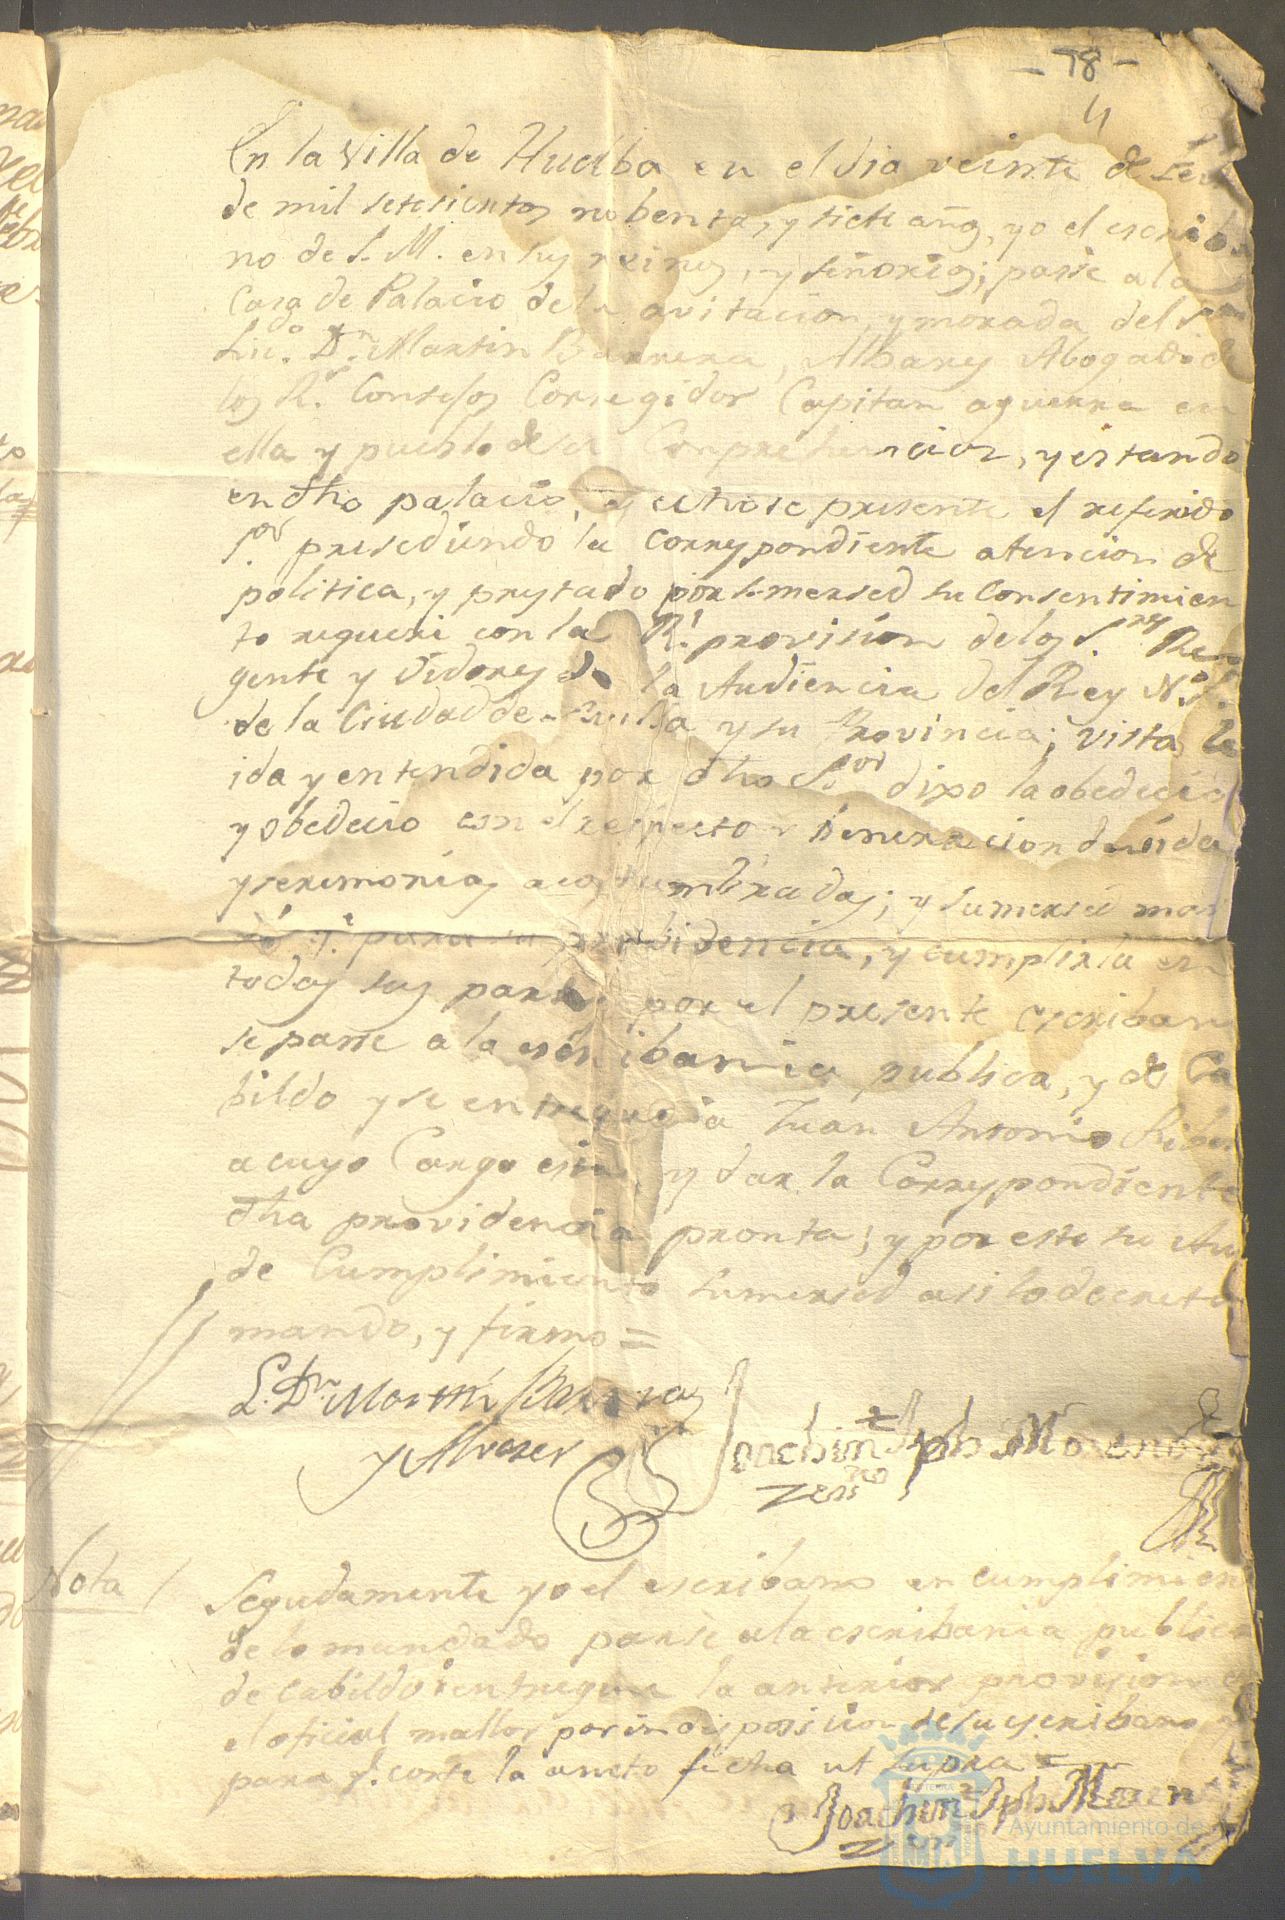 - 78 -
4
En la Villa de Huelba en el dia veinte de
de mil setesientos nobenta, y siete añs, yo el escriba
no de S. M. en sus reinos, y señorios; passe a la
Casa de Palacio de la avitacion, y morada del Sor
Lic.do Dn. Martin Barrera, Albares Abogado de
los Rs. Consejos Corregidor Capitan aguerra en
ella y pueblo de su Comprehencion, y estando
en dho palacio, y echose presente el referido
Sor presediendo la correspondiente atencion de
politica, y prestado por su mersed su Consentimien
to requeri con la Rl. provision de los S.res Re
gente y Oidores de la Audiencia del Rey N. S.
de la Ciudad de Sevilla y su Provincia; vista, le
ida y entendida por dho Sor dixo la obedecia
y obedecio con el respecto y beneracion devida
y seremonias acostumbradas; y su mersed man
dó q.e para su probidencia, y cumplirla en
todas sus partes por el presente escriban
se passe a la escribania publica, y de Ca
bildo y se entregue a Juan Antonio
a cuyo Cargo esta, y dar la Correspondiente
dha providencia pronta; y por este su Au
de Cumplimiento su mersed asi lo decreto
mando, y firmo =
L. Dn. Martin Barrera
y Alvarez
Joachin Jph Moreno
Nota /
Segudamente yo el escribano en cumplimien
de lo mandado passe a la escribania publica
de cabildo i entregue la anterior provision
el oficial mallor por indisposicion de su escribano
para q. corte la aneto fecha ut supra =
Joachin Jph Moren
Ayuntamiento de
HUELVA